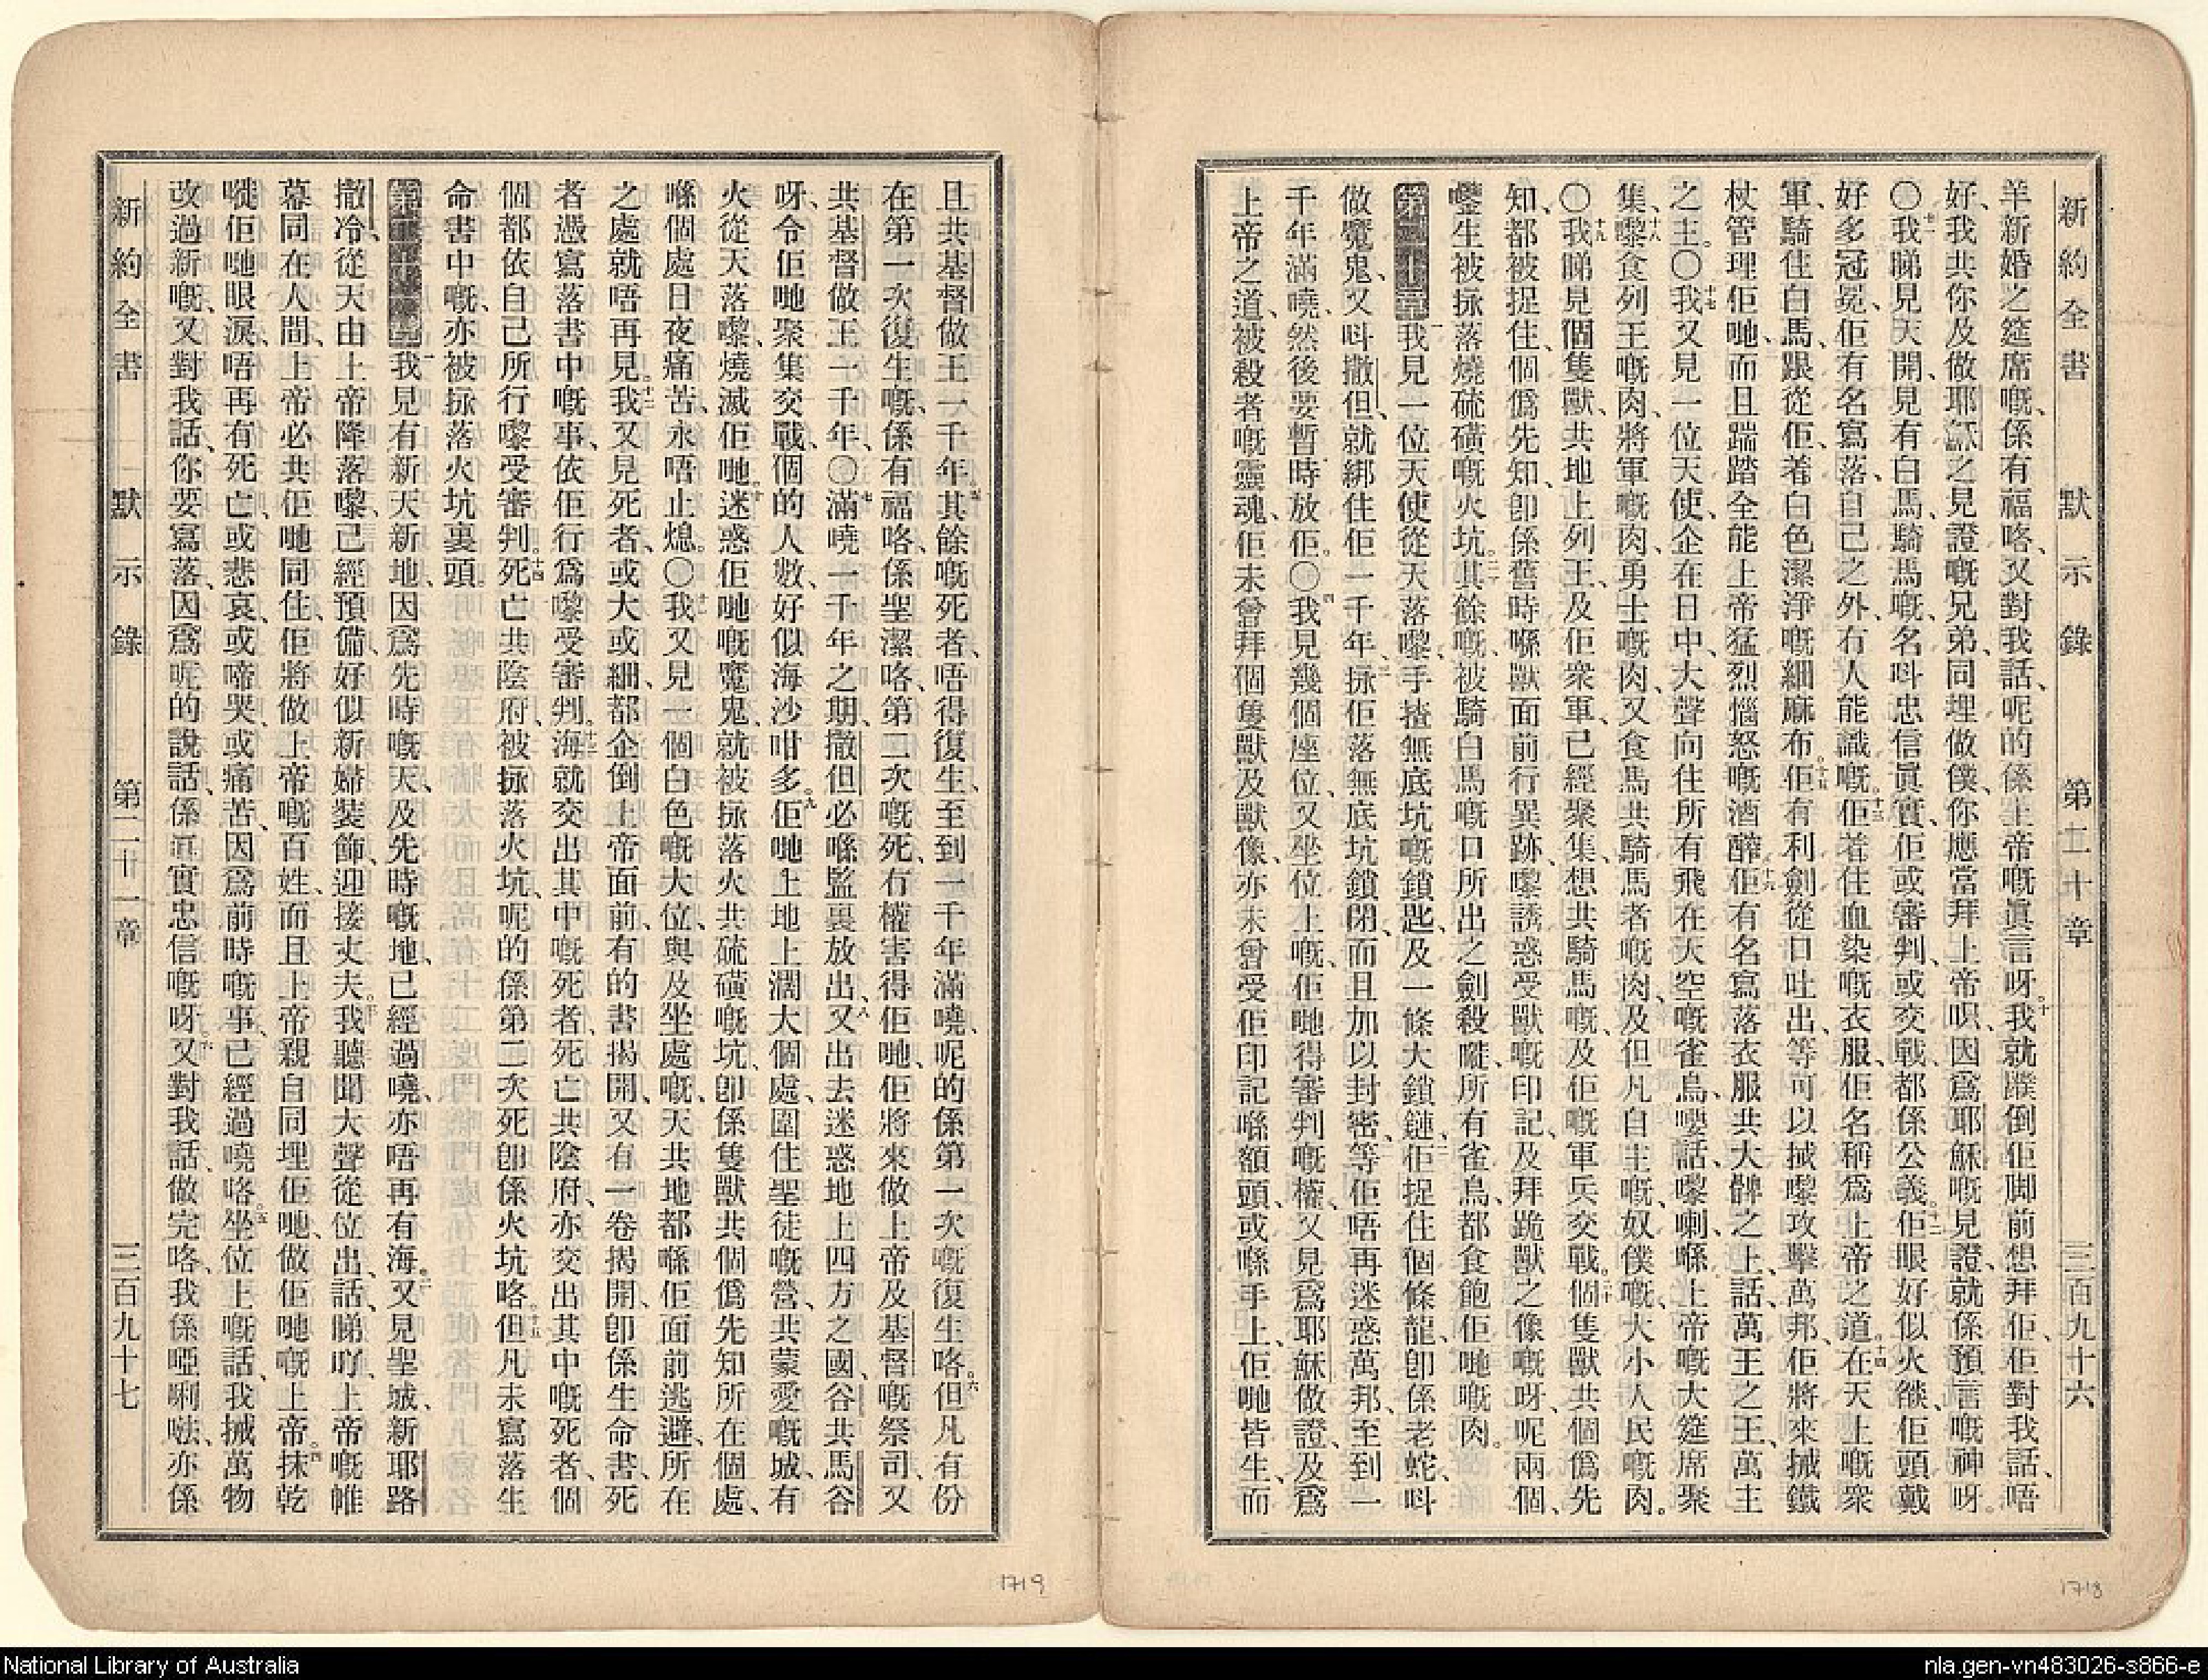 新約全書 默示錄 第二十章 三百九十六
羊新婚之筵席嘅、係有福咯、又對我話、呢的係上帝嘅眞言呀。十我就蹼倒佢脚前想拜佢、佢對我話、唔
好、我共你及做耶穌之見證嘅兄弟、同埋做僕、你應當拜上帝呮、因爲耶穌嘅見證、就係預言嘅神呀。
〇十一我睇見天開、見有白馬、騎馬嘅、名呌忠信眞實、佢或審判、或交戰、都係公義。十二佢眼好似火燄、佢頭戴
好多冠冕、佢有名寫落、自己之外、冇人能識嘅。十三佢着住血染嘅衣服、佢名稱爲上帝之道。十四在天上嘅衆
軍、騎住白馬、跟從佢、着白色潔淨嘅細麻布。十五佢有利劍從口吐出、等可以𢫏嚟攻擊萬邦、佢將來𢫏鐵
杖管理佢哋、而且踹踏全能上帝猛烈惱怒嘅酒醡。十六佢有名寫落衣服共大髀之上、話、萬王之王、萬主
之主。〇十七我又見一位天使、企在日中、大聲向住所有飛在天空嘅雀鳥、嘍話、嚟喇、喺上帝嘅大筵席聚
集、十八嚟食列王嘅肉、將軍嘅肉、勇士嘅肉、又食馬共騎馬者嘅肉、及但凡自主嘅、奴僕嘅、大小人民嘅肉。
〇十九我睇見個隻獸、共地上列王、及佢衆軍、已經聚集、想共騎馬嘅、及佢嘅軍兵交戰。二十個隻獸共個僞先
知、都被捉住、個僞先知、卽係舊時喺獸面前行異跡、嚟誘惑受獸嘅印記、及拜跪獸之像嘅呀、呢兩個、
噬生被掁落燒硫磺嘅火坑。二一其餘嘅、被騎白馬嘅口所出之劍殺嘥、所有雀鳥、都食飽佢哋嘅肉。
第二十章一我見一位天使從天落嚟、手揸無底坑嘅鎖匙、及一條大鎖鏈、二佢捉住個條龍、卽係老蛇、呌
做魔鬼、又呌撒但、就綁住佢一千年、三掁佢落無底坑鎖閉、而且加以封密、等佢唔再迷惑萬邦、至到一
千年滿嘵、然後要暫時放佢。〇四我見幾個座位、又坐位上嘅、佢哋得審判嘅權、又見爲耶穌做證、及爲
上帝之道、被殺者嘅靈魂、佢未曾拜個隻獸及獸像、亦未曾受佢印記喺額頭、或喺手上、佢哋皆生、而
且共基督做王一千年。五其餘嘅死者、唔得復生、至到一千年滿嘵、呢的係第一次嘅復生咯。六但凡有份
在第一次復生嘅、係有福咯、係聖潔咯、第二次嘅死、冇權害得佢哋、佢將來做上帝及基督嘅祭司、又
共基督做王一千年。〇七滿嘵一千年之期、撒但必喺監裏放出、八又出去迷惑地上四方之國、谷共馬谷
呀、令佢哋聚集交戰、個的人數、好似海沙咁多。九佢哋上地上濶大個處、圍住聖徒嘅營、共蒙愛嘅城、有
火從天落嚟、燒滅佢哋。十迷惑佢哋嘅魔鬼、就被掁落火共硫磺嘅坑、卽係隻獸共個僞先知所在個處、
喺個處日夜痛苦、永唔止熄。〇十一我又見一個白色嘅大位、與及坐處嘅、天共地都喺佢面前逃避、所在
之處、就唔再見。十二我又見死者、或大或細、都企倒上帝面前、有的書揭開、又有一卷揭開、卽係生命書、死
者憑寫落書中嘅事、依佢行爲嚟受審判。十三海就交出其中嘅死者、死亡共陰府、亦交出其中嘅死者、個
個都依自己所行嚟受審判。十四死亡共陰府、被掁落火坑、呢的係第二次死、卽係火坑咯。十五但凡未寫落生
命書中嘅、亦被掁落火坑裏頭。
第二十一章一我見有新天新地、因爲先時嘅天、及先時嘅地、已經過嘵、亦唔再有海。二又見聖城、新耶路
撒冷、從天由上帝降落嚟、已經預備、好似新婦裝飾、迎接丈夫。三我聽聞大聲從位出、話、睇吖、上帝嘅帷
幕同在人間、上帝必共佢哋同住、佢將做上帝嘅百姓、而且上帝親自同埋佢哋、做佢哋嘅上帝。四抹乾
嘥佢哋眼淚、唔再有死亡、或悲哀、或啼哭、或痛苦、因爲前時嘅事、已經過嘵咯。五坐位上嘅話、我𢫏萬物
改過新嘅、又對我話、你要寫落、因爲呢的說話、係眞實忠信嘅呀、六又對我話、做完咯、我係啞唎㕸、亦係
新約全書 默示錄 第二十一章 三百九十七
1719
1718
National Library of Australia
nla.gen-vn483026-s866-e